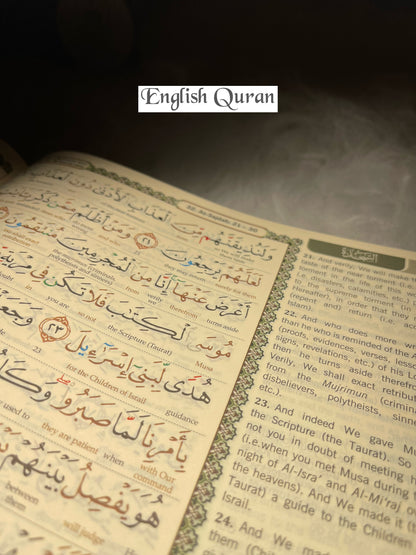 English Quran
32. As-Sajdah: 21 - 30
وَلَنُذِيقَنَّهُم مِّنَ ٱلْعَذَابِ ٱلْأَدْنَىٰ دُونَ ٱلْعَذَابِ
لَعَلَّهُمْ يَرْجِعُونَ ٢١ وَمَنْ أَظْلَمُ مِمَّن ذُكِّرَ
أَعْرَضَ عَنْهَآ إِنَّا مِنَ ٱلْمُجْرِمِينَ مُنتَقِمُونَ
from verily therefrom turns aside
مُوسَى ٱلْكِتَٰبَ فَلَا تَكُن فِى
in you are so not the Scripture (Taurat) Musa
هُدًى لِّبَنِىٓ إِسْرَٰٓءِيلَ ٢٣ وَجَعَ
23 for the Children of Israil guidance
بِأَمْرِنَا لَمَّا صَبَرُوا۟ وَكَا
used to they are patient when with Our command
هُوَ يَفْصِلُ بَيْنَهُمْ
between them will judge He
السجدة
21. And verily, We will
taste of the near torment (i.e.
torment in the life of this
i.e. disasters, calamities, etc.)
to the supreme torment
in order that they
repent and return (i.e.
22. And who does more
than he who is reminded of the
(proofs, evidences, verses, lesso
signs, revelations, etc.) of his L
then he turns aside therefr
Verily, We shall exact retribut
from the Mujrimun (crimina
disbelievers, polytheists, sinne
etc.)
23. And indeed We gave Mu
the Scripture (the Taurat). So
not you in doubt of meeting h
(i.e.when you met Musa during
night of Al-Isra' and Al-Mi'raj ov
the heavens). And We made it (t
Taurat) a guide to the Children
Israil.
24. And We ma
them (Ch